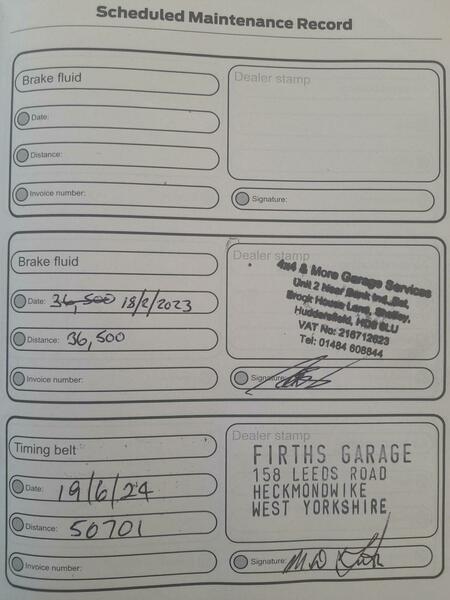 Scheduled Maintenance Record
Brake fluid
Date:
Distance:
Invoice number:
Dealer stamp
Signature:
Brake fluid
Date: 36,500 18/2/2023
Distance: 36,500
Invoice number:
Dealer stamp
4x4 & More Garage Services
Unit 2 Near Bank Ind. Est,
Brock House Lane, Shelley,
Huddersfield, HD8 8LU
VAT No: 218712623
Tel: 01484 608844
Signature:
Timing belt
Date: 19/6/24
Distance: 50701
Invoice number:
Dealer stamp
FIRTHS GARAGE
158 LEEDS ROAD
HECKMONDWIKE
WEST YORKSHIRE
Signature: